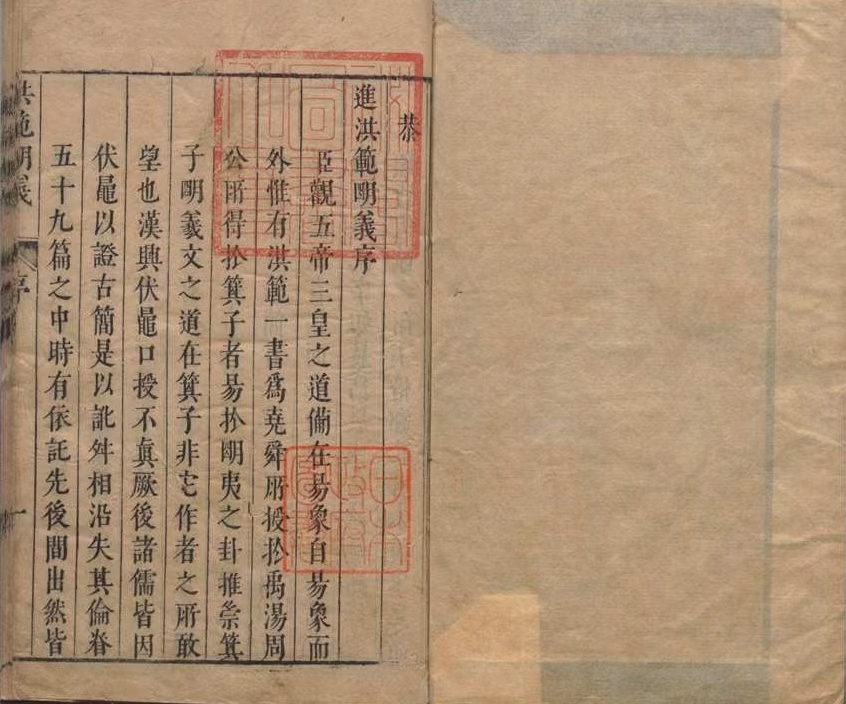 恭
進洪範明義序
臣觀五帝三皇之道備在昜象自昜象而
外惟有洪範一書為堯舜所授於禹湯周
公所得於箕子者昜於明夷之卦推崇箕
子明羲文之道在箕子非它作者之所敢
望也漢興伏鼂口授不真厥後諸儒皆因
伏鼂以證古簡是以訛舛相沿失其倫脊
五十九篇之中時有依託先後間出然皆
洪範明義
序
一